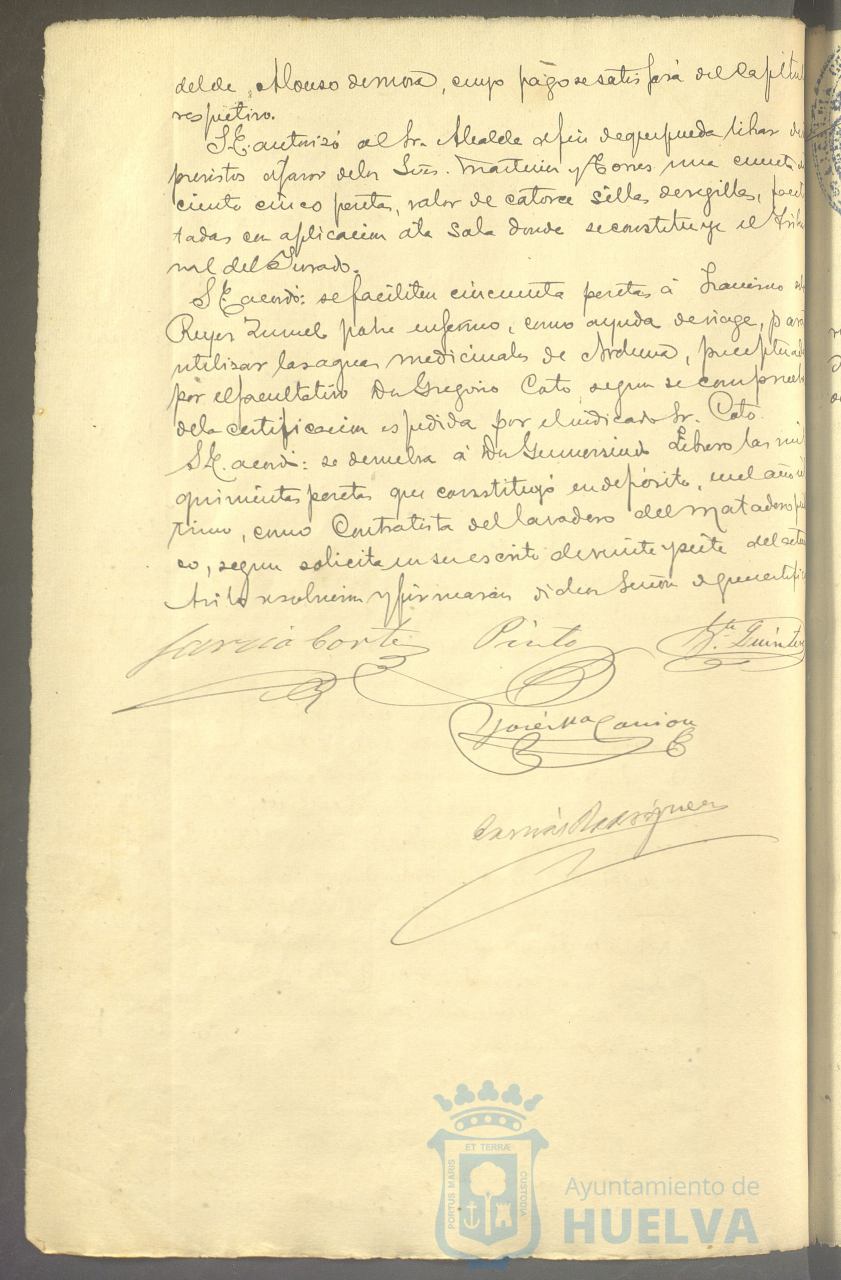 delde Alonso de mora, cuyo pago se satisfará del Capitul
respetivo.
S.E. autorizó al Sr. Alcalde afin de que pueda librar de
previstos afavor delos Sres. Martinez y Torres una cuenta de
ciento cinco pesetas, valor de catorce sillas de regilla, facili
tadas con aplicacion ála Sala donde se constituye el Tribu
nal del Jurado.
S.E. acordó: se faciliten cincuenta pesetas á Francisco de
Reyes Zumel pobre enfermo, como ayuda de viage, para
utilizar las aguas medicinales de, preceptuad
por el facultativo Dn Gregorio Cato, segun se comprueb
dela certificacion espedida por el indicado Sr. Cato.
S.E. acordó: se devuelva á Dn Gumersindo Librero las mil
quinientas pesetas que constituyó en depósito, en el año úl
timo, como Contratista del lavadero del matadero públi
co, segun solicita en su escrito de veinte y siete del actu
Asi lo resolvieron y firmarán dichos Señores de que certifico
Garcia Cortes Pinto Mte. Quintero
José Ma Carrion
Rodriguez
PORTUS MARIS
ET TERRÆ
CUSTODIA
Ayuntamiento de
HUELVA